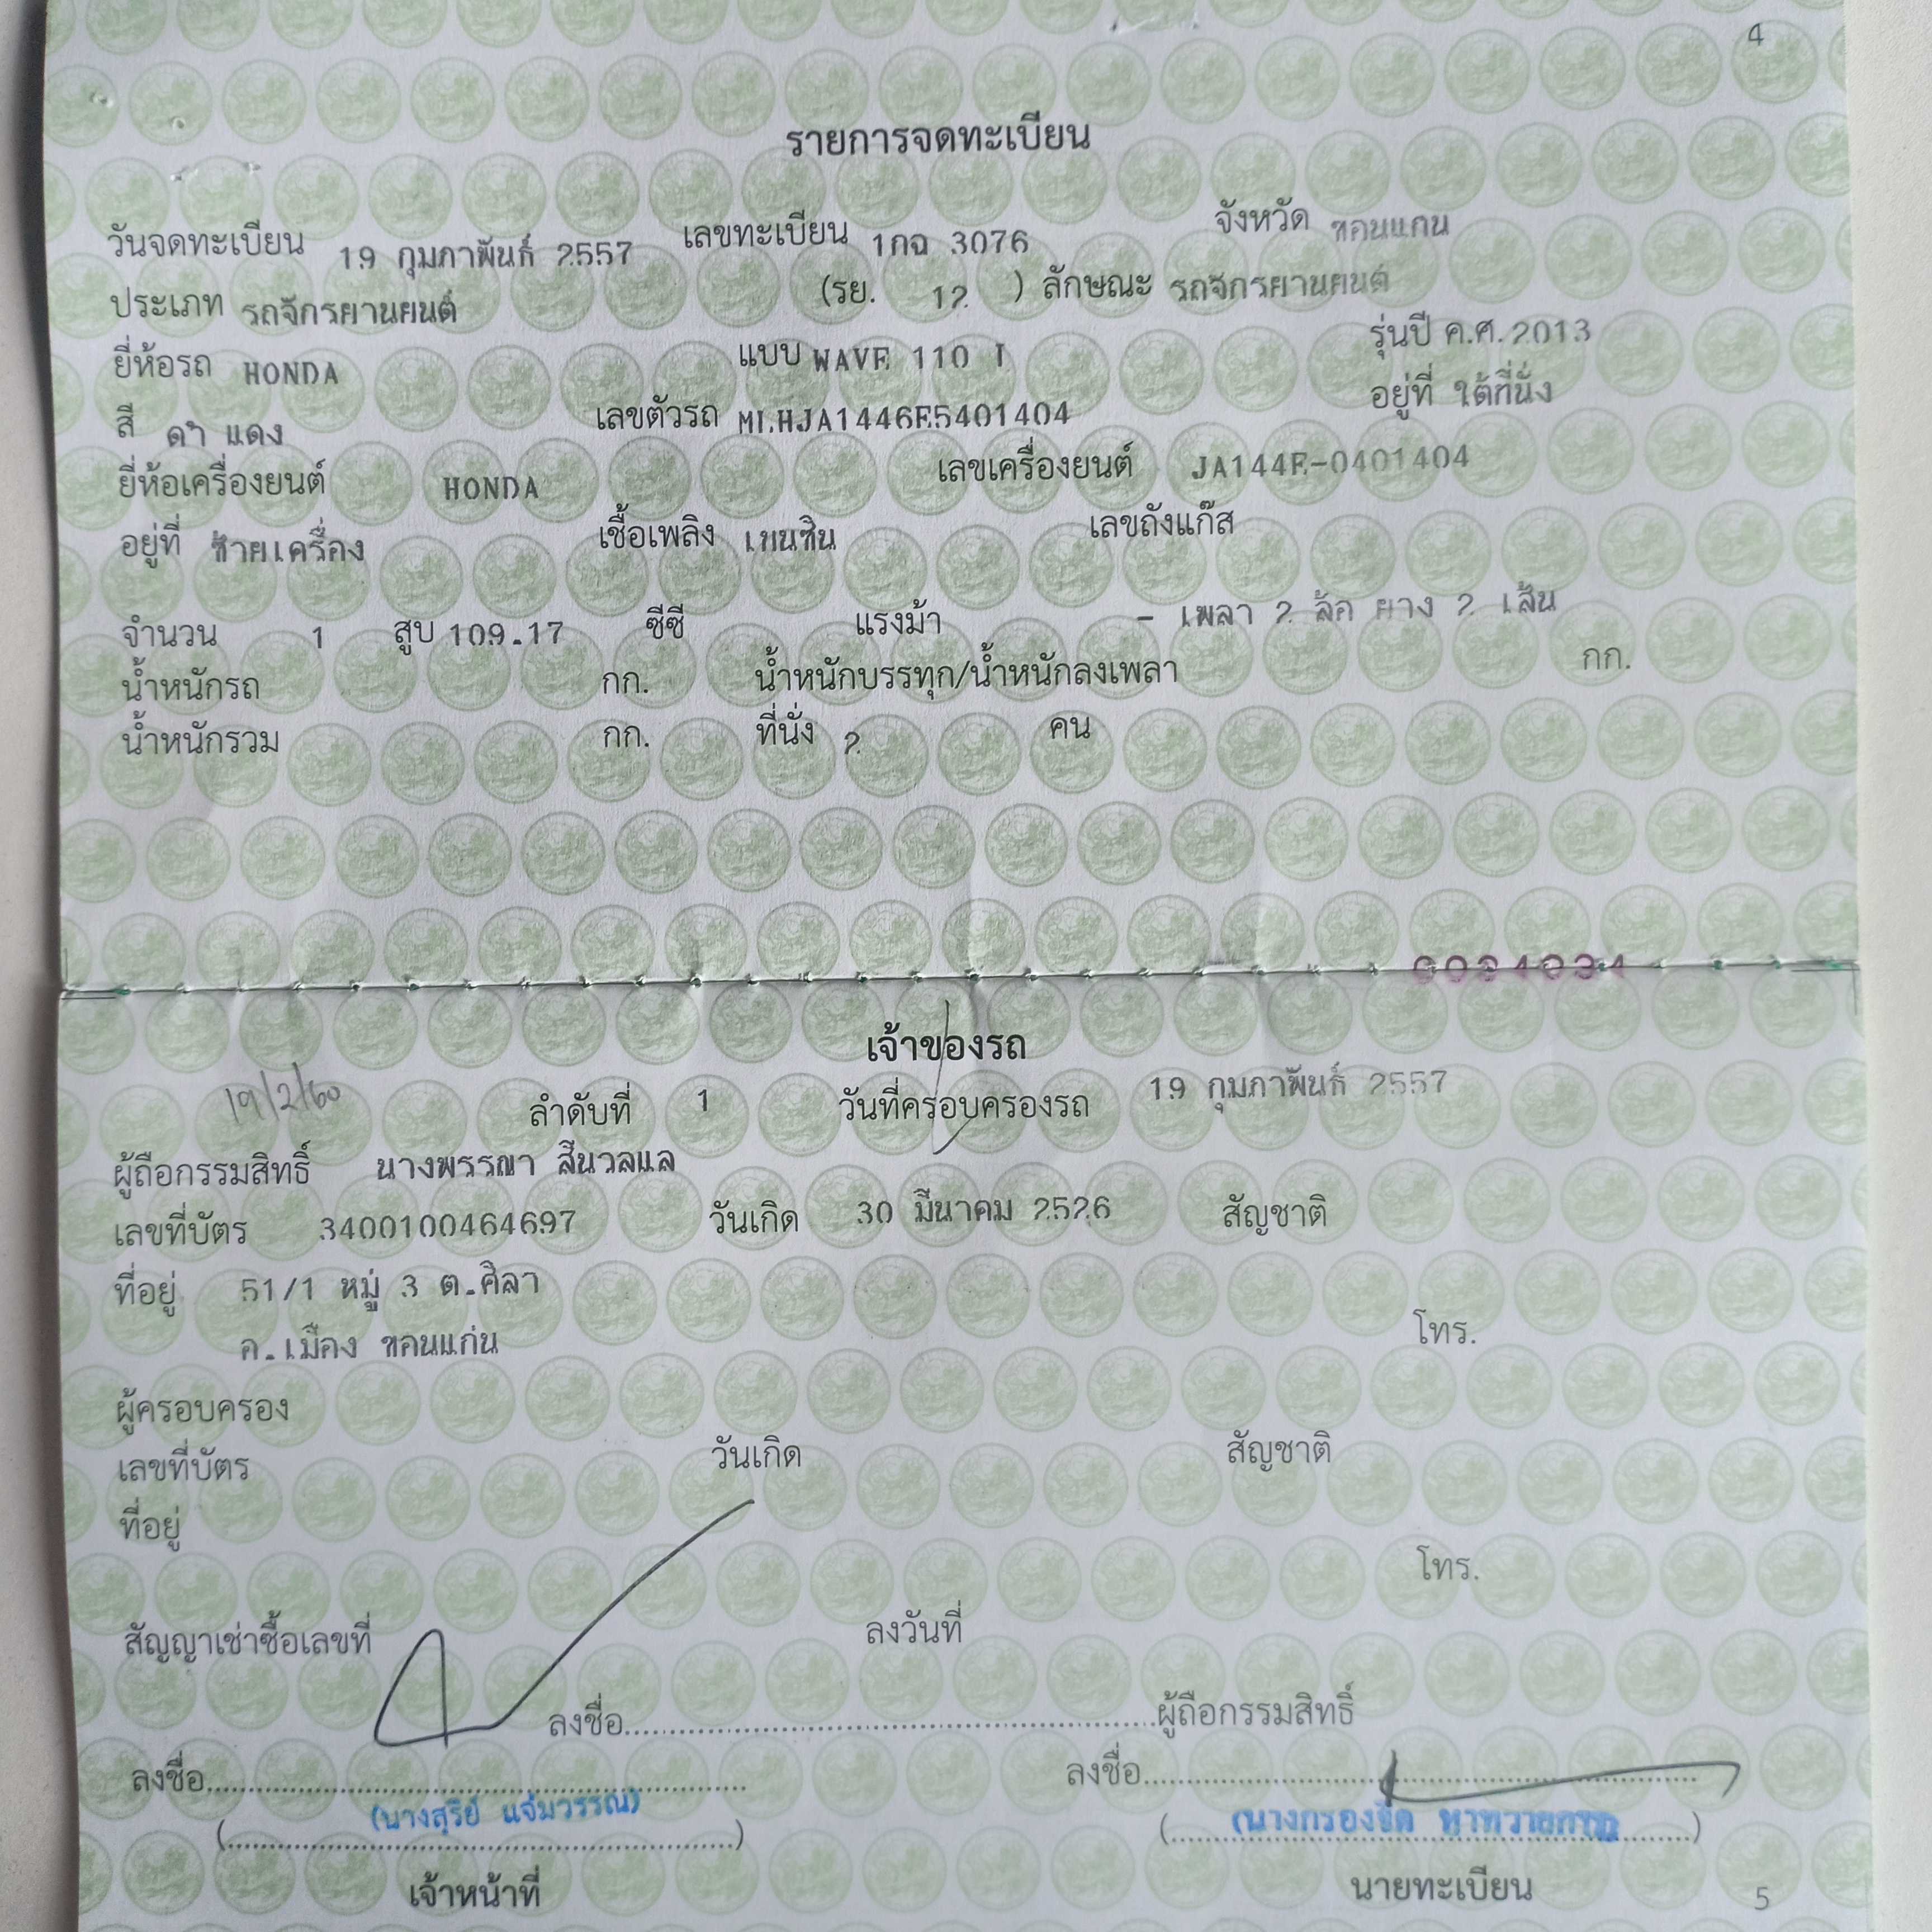 4
รายการจดทะเบียน
วันจดทะเบียน 19 กุมภาพันธ์ 2557 เลขทะเบียน 1กฉ 3076 จังหวัด ขอนแก่น
ประเภท รถจักรยานยนต์ (รย. 12 ) ลักษณะ รถจักรยานยนต์
ยี่ห้อรถ HONDA แบบ WAVE 110 I รุ่นปี ค.ศ. 2013
สี ดำ แดง เลขตัวรถ MLHJA1446E5401404 อยู่ที่ ใต้ที่นั่ง
ยี่ห้อเครื่องยนต์ HONDA เลขเครื่องยนต์ JA144E-0401404
อยู่ที่ ซ้ายเครื่อง เชื้อเพลิง เบนซิน เลขถังแก๊ส
จำนวน 1 สูบ 109.17 ซีซี แรงม้า - เพลา 2 ล้อ ยาง 2 เส้น
น้ำหนักรถ กก. น้ำหนักบรรทุก/น้ำหนักลงเพลา กก.
น้ำหนักรวม กก. ที่นั่ง 2 คน
เจ้าของรถ
19/2/60
ลำดับที่ 1 วันที่ครอบครองรถ 19 กุมภาพันธ์ 2557
ผู้ถือกรรมสิทธิ์ นางพรรณา สีนวลแล
เลขที่บัตร 3400100464697 วันเกิด 30 มีนาคม 2526 สัญชาติ
ที่อยู่ 51/1 หมู่ 3 ต.ศิลา
อ.เมือง ขอนแก่น โทร.
ผู้ครอบครอง
เลขที่บัตร วันเกิด สัญชาติ
ที่อยู่
โทร.
สัญญาเช่าซื้อเลขที่ ลงวันที่
ลงชื่อ..........ผู้ถือกรรมสิทธิ์
ลงชื่อ.......... ลงชื่อ..........
(นางสุรีย์ แจ่มวรรณ) (นางกรองจิต
เจ้าหน้าที่ นายทะเบียน
5